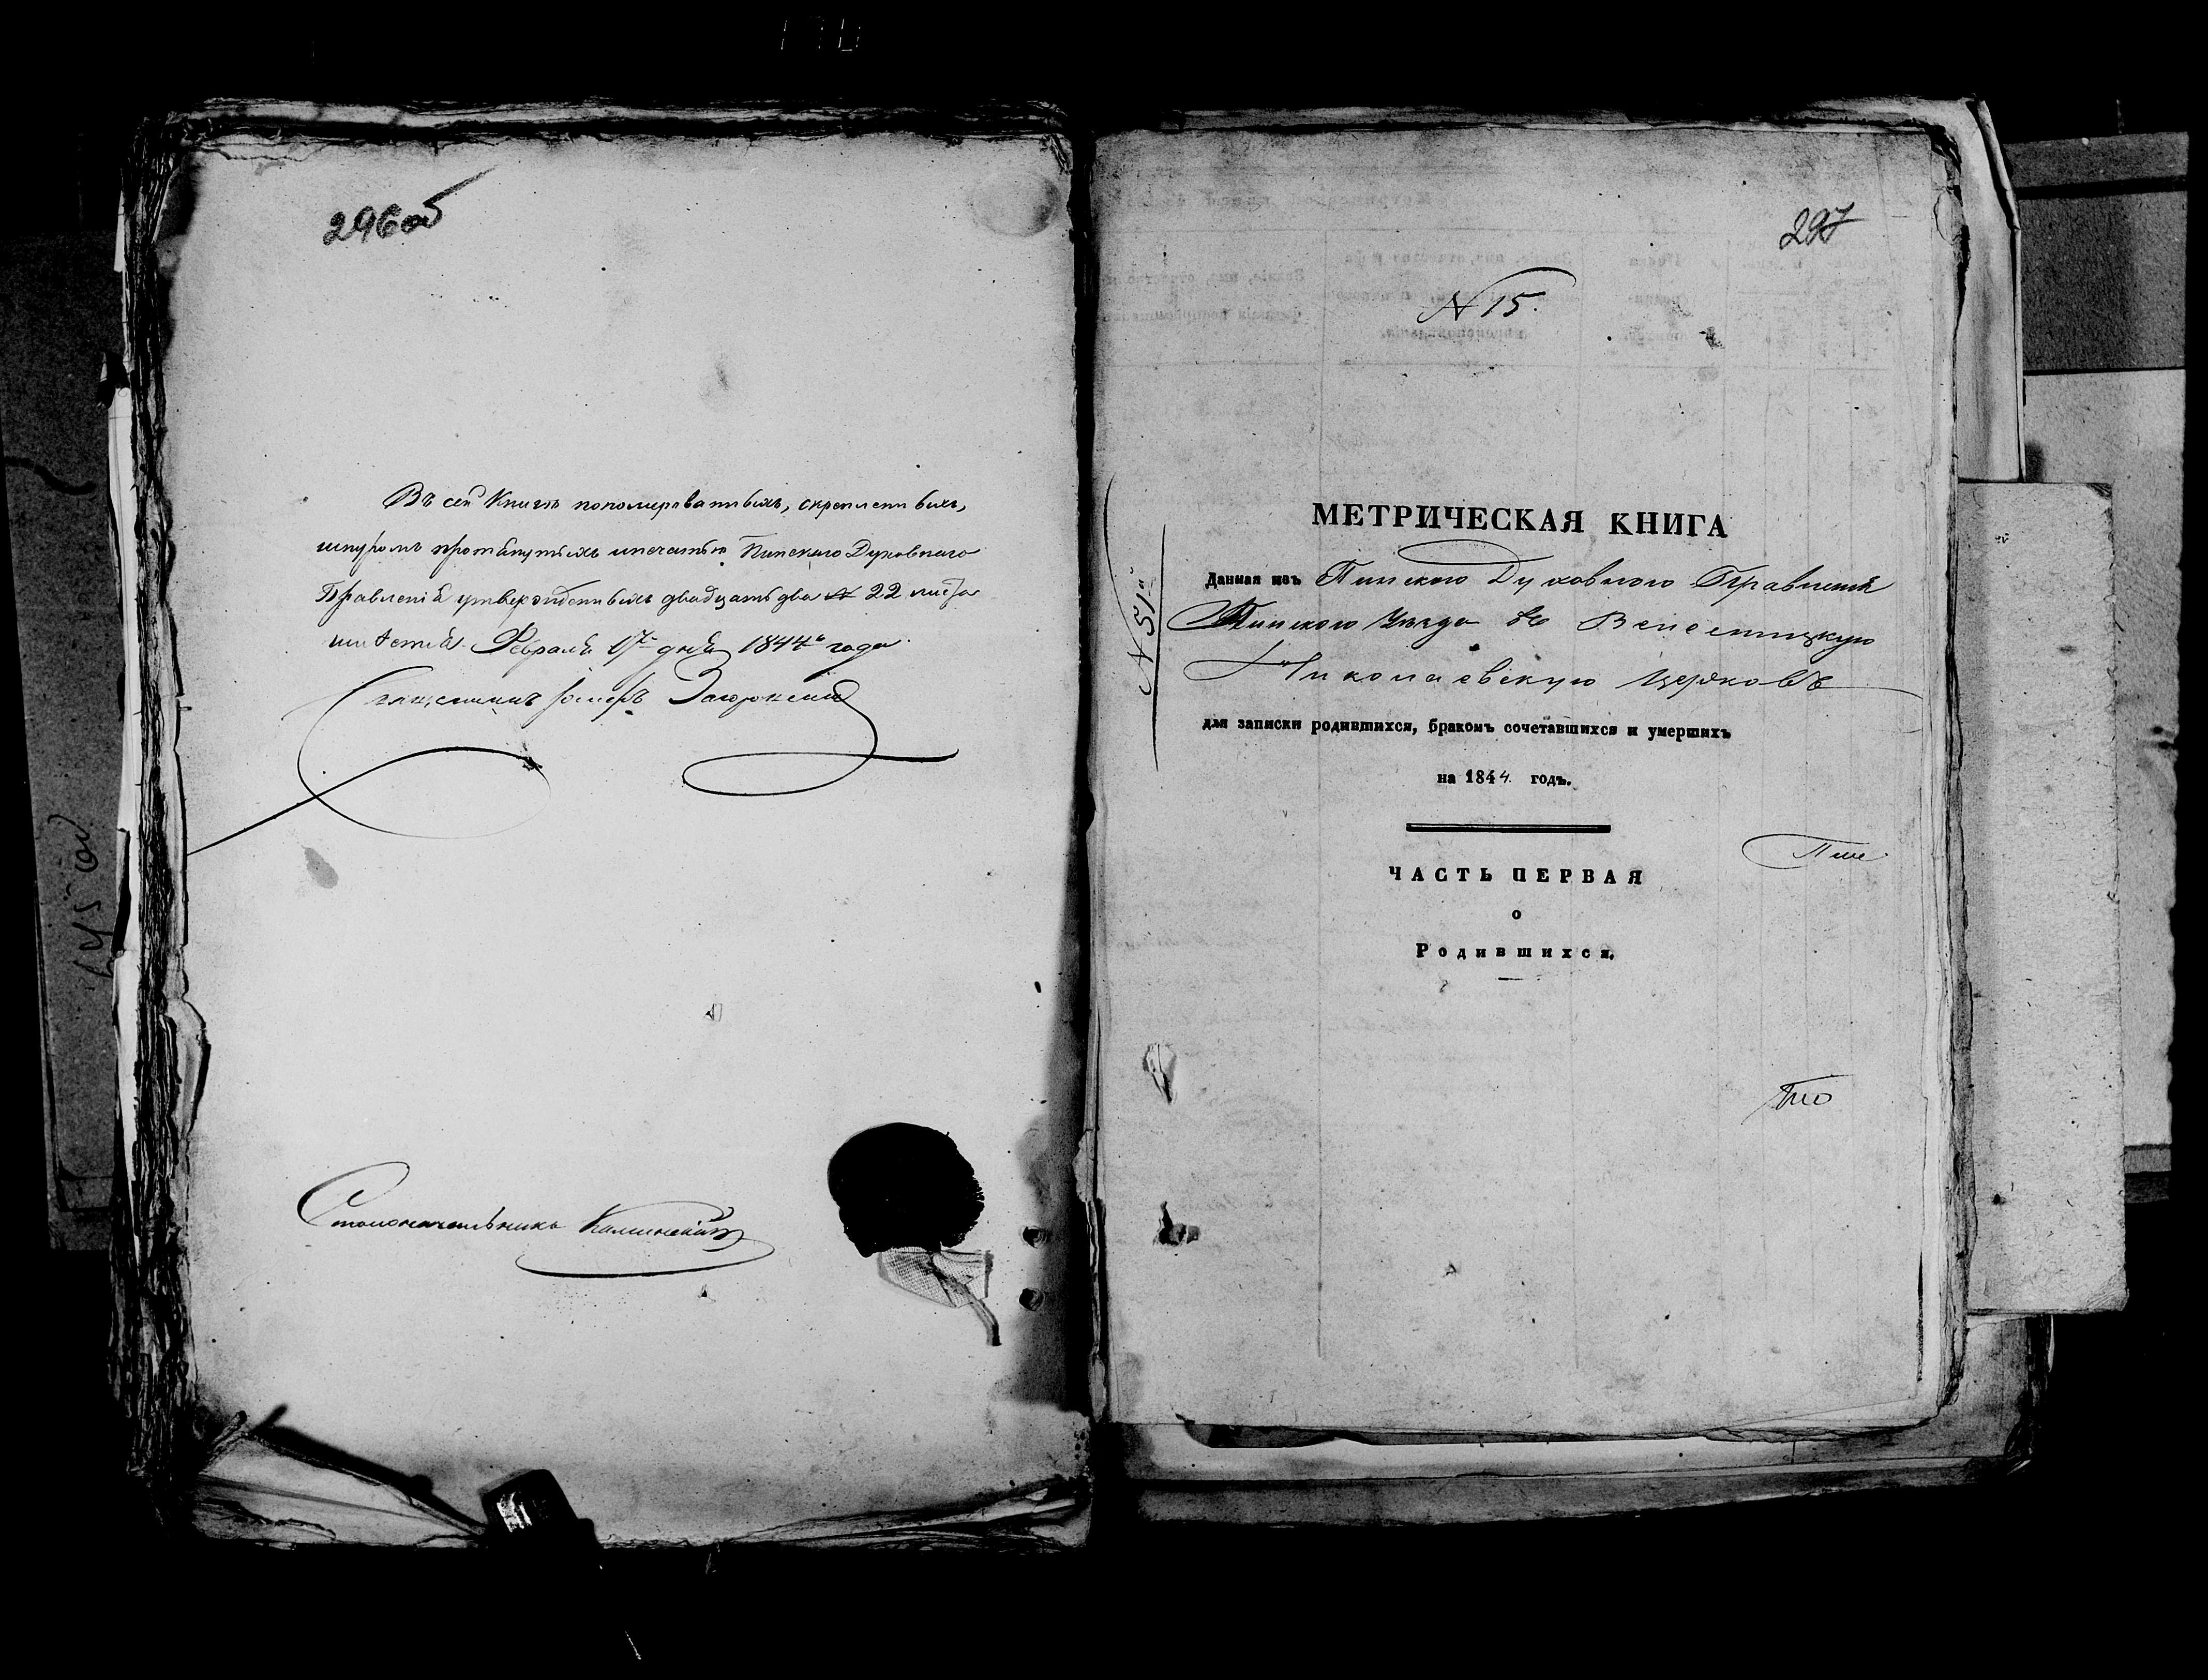 296об
Въ сей Книгѣ пономерованныхъ, скрепленныхъ,
шнуромъ протянутыхъ и печатью Пинского Духовного
Правленія утвержденныхъ двадцать два № 22 листа
имѣется. Февраля 17 дня 1844 года.
Священникъ
Столоначальникъ Каминскій
297
N 15.
N 51
МЕТРИЧЕСКАЯ КНИГА
Данная изъ Пинского Духовного Правленія
Пинского Уѣзда въ
Николаевскую Церковь
для записки родившихся, бракомъ сочетавшихся и умершихъ
на 1844 годъ.
ЧАСТЬ ПЕРВАЯ
о
Родившихся.